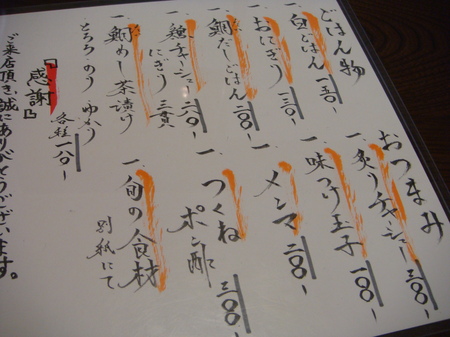 ごはん物
一、白ごはん 一五〇ー
一、おにぎり 一三〇ー
一、鯛だしごはん 二〇〇ー
一、チャーシュー
にぎり 三貫 二〇〇ー
一、鯛めし茶漬け
とろろ・のり・ゆかり
各種 一八〇ー
おつまみ
一、炙りチャーシュー 三〇〇ー
一、味つけ玉子 一〇〇ー
一、メンマ 二〇〇ー
一、つくね
ポン酢 三〇〇ー
一、旬の食材
別紙にて
『感謝』
ご来店頂き、誠にありがとうございます。